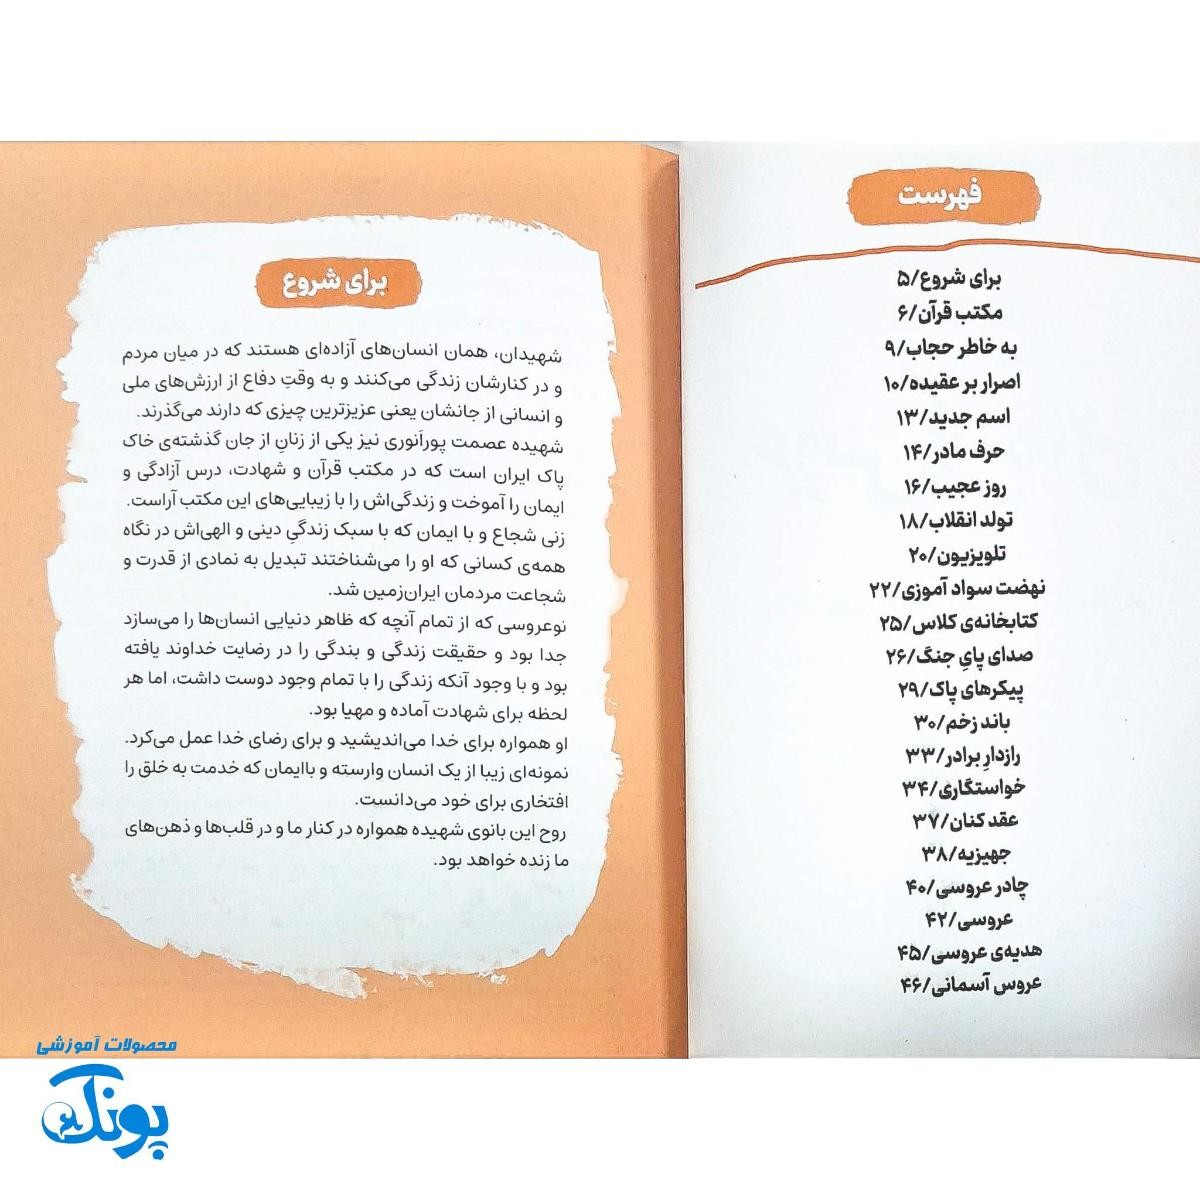 فهرست
برای شروع/۵
مکتب قرآن/۶
به خاطر حجاب/۹
اصرار بر عقیده/۱۰
اسم جدید/۱۳
حرف مادر/۱۴
روز عجیب/۱۶
تولد انقلاب/۱۸
تلویزیون/۲۰
نهضت سواد آموزی/۲۲
کتابخانه‌ی کلاس/۲۵
صدای پایِ جنگ/۲۶
پیکرهای پاک/۲۹
باند زخم/۳۰
رازدارِ برادر/۳۳
خواستگاری/۳۴
عقد کنان/۳۷
جهیزیه/۳۸
چادر عروسی/۴۰
عروسی/۴۲
هدیه‌ی عروسی/۴۵
عروس آسمانی/۴۶
برای شروع
شهیدان، همان انسان‌های آزاده‌ای هستند که در میان مردم
و در کنارشان زندگی می‌کنند و به وقتِ دفاع از ارزش‌های ملی
و انسانی از جانشان یعنی عزیزترین چیزی که دارند می‌گذرند.
شهیده عصمت پورآنوری نیز یکی از زنانِ از جان گذشته‌ی خاک
پاک ایران است که در مکتب قرآن و شهادت، درس آزادگی و
ایمان را آموخت و زندگی‌اش را با زیبایی‌های این مکتب آراست.
زنی شجاع و با ایمان که با سبک زندگیِ دینی و الهی‌اش در نگاه
همه‌ی کسانی که او را می‌شناختند تبدیل به نمادی از قدرت و
شجاعت مردمان ایران‌زمین شد.
نوعروسی که از تمام آنچه که ظاهر دنیایی انسان‌ها را می‌سازد
جدا بود و حقیقت زندگی و بندگی را در رضایت خداوند یافته
بود و با وجود آنکه زندگی را با تمام وجود دوست داشت، اما هر
لحظه برای شهادت آماده و مهیا بود.
او همواره برای خدا می‌اندیشید و برای رضای خدا عمل می‌کرد.
نمونه‌ای زیبا از یک انسان وارسته و باایمان که خدمت به خلق را
افتخاری برای خود می‌دانست.
روح این بانوی شهیده همواره در کنار ما و در قلب‌ها و ذهن‌های
ما زنده خواهد بود.
محصولات آموزشی
پونک